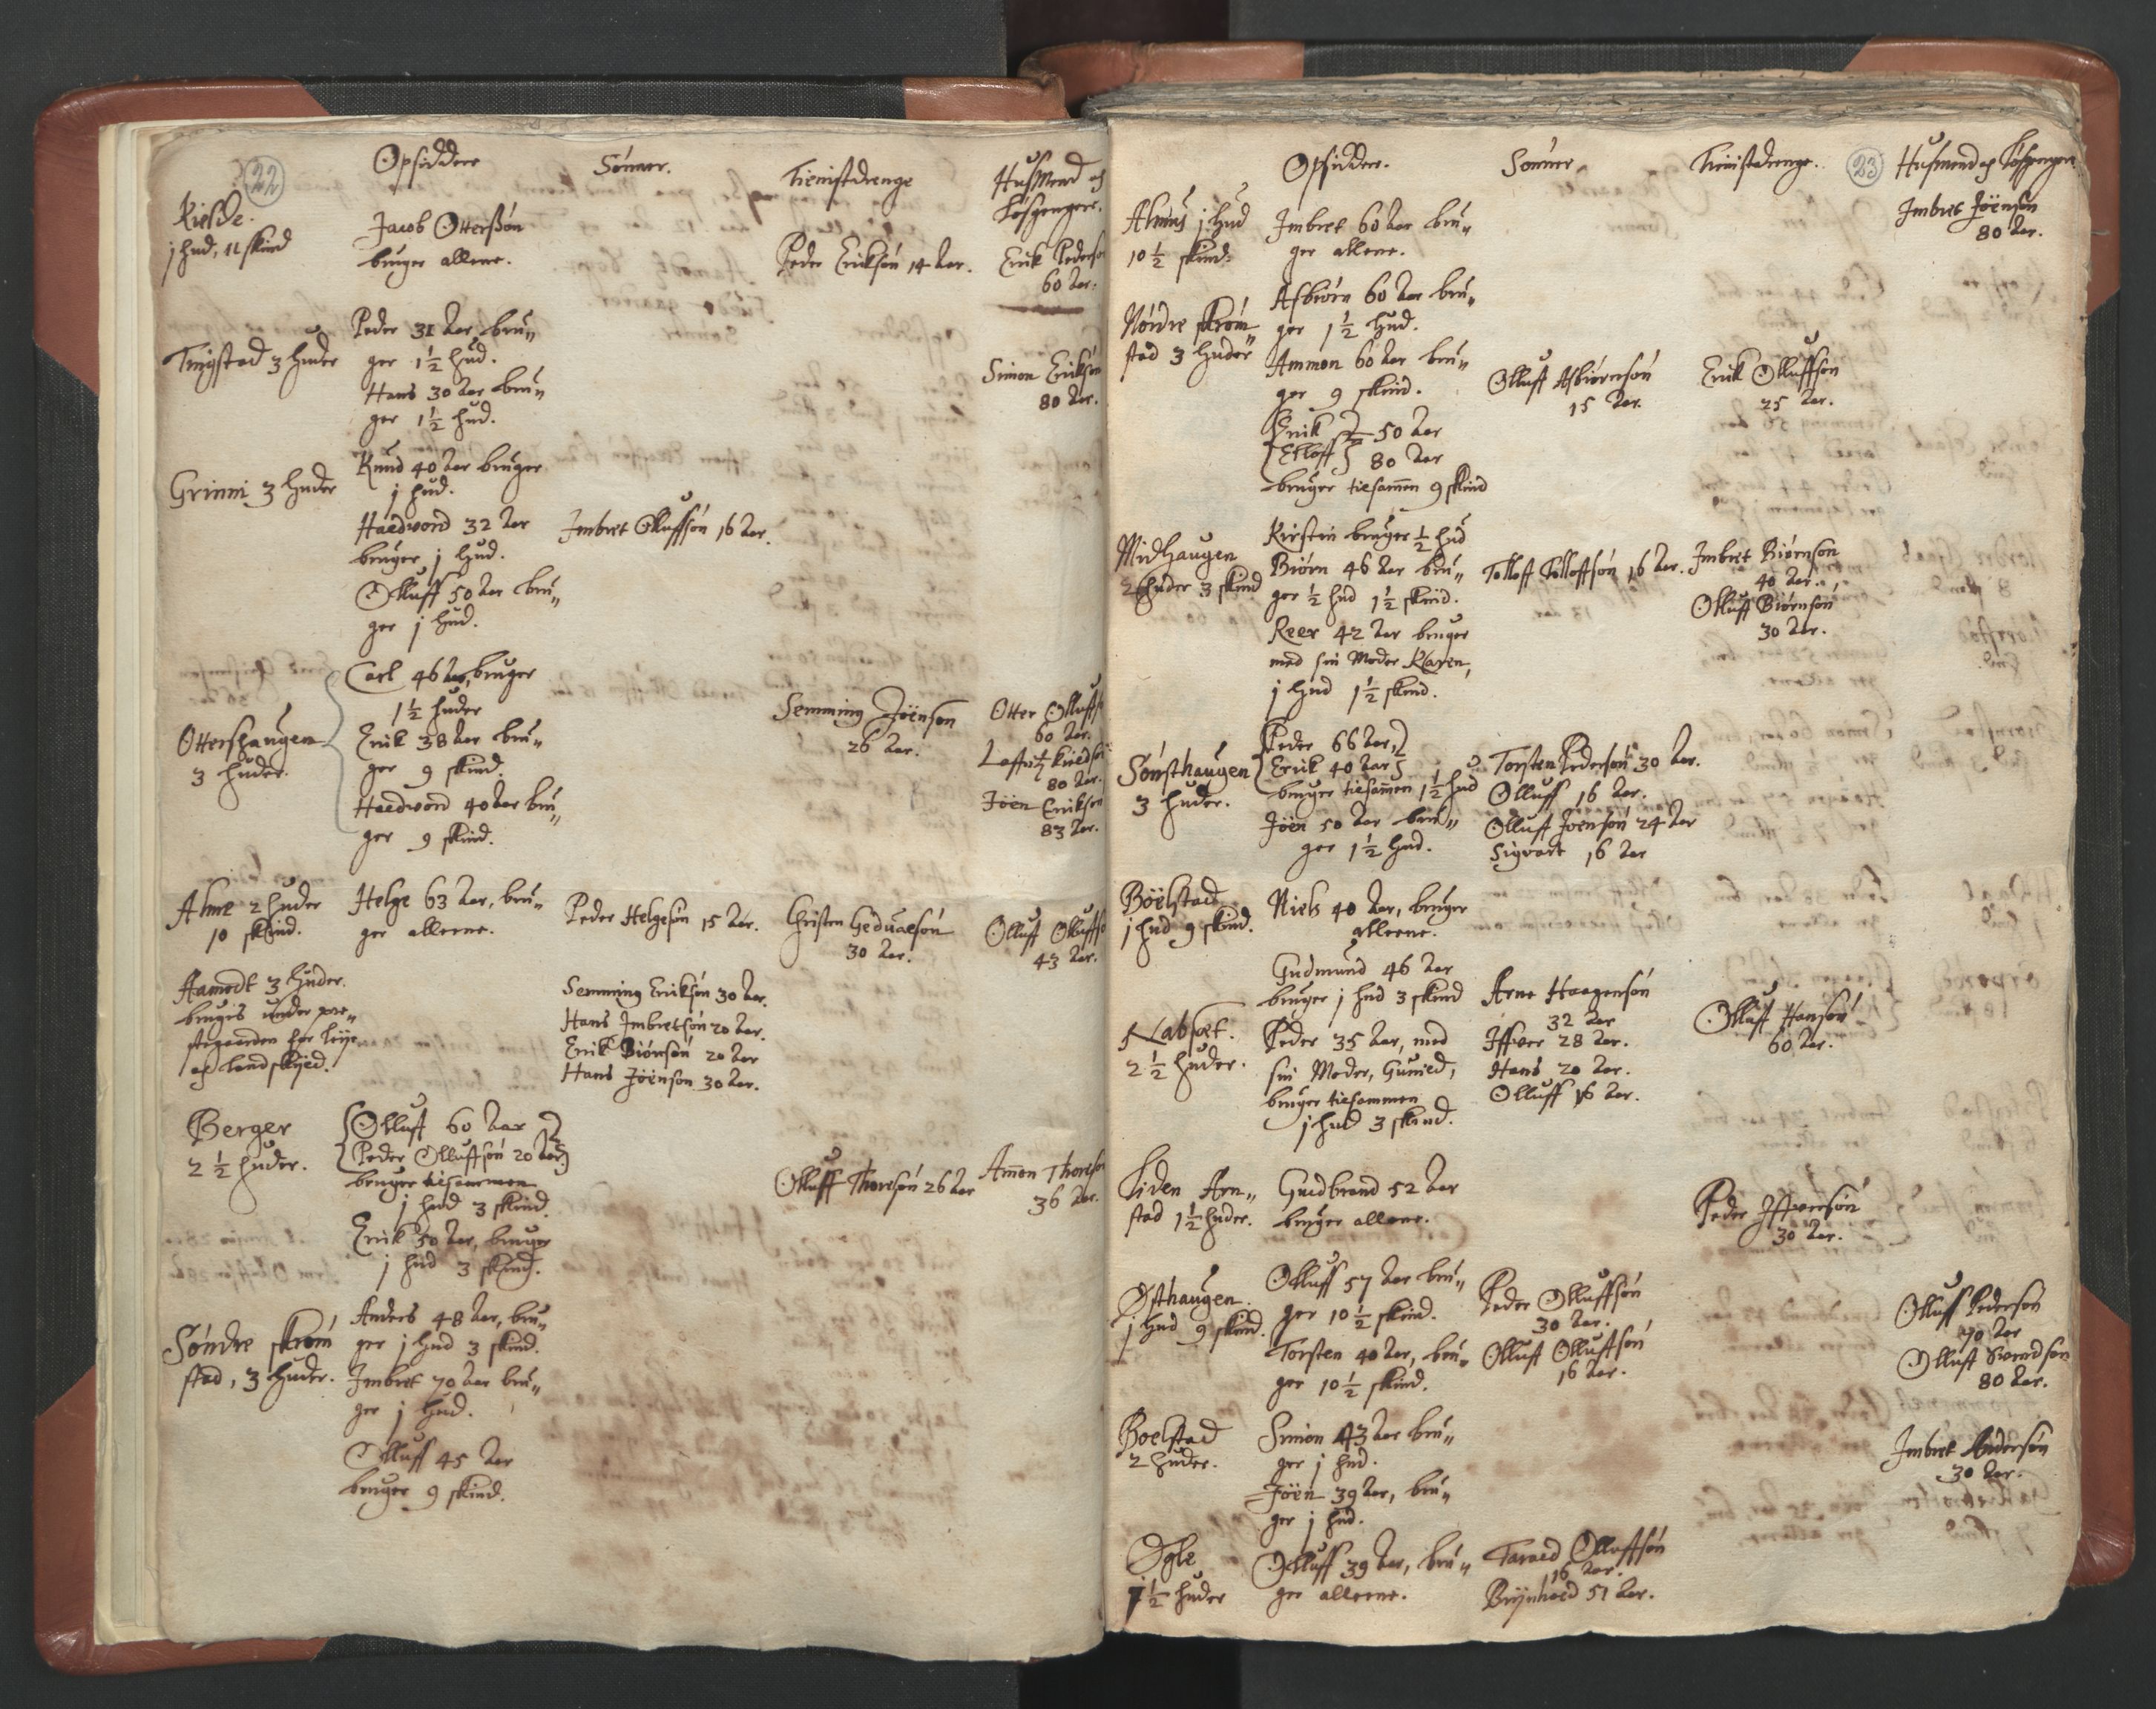 22
Opsiddere
Sønner.
Tienistdrenge
HusMend och
Løsgengere.
Kielde.
j hud, 11 skind
Jacob Otterßøn
bruger allene.
Peder Eriksøn 14 aar.
Erik Pederso
60 aar.
Tingstad 3 huder
Peder 31 aar bru„
ger 1½ hud.
Hans 30 aar bru„
ger 1½ hud.
Simon Eriksøn
80 aar.
Grinni 3 huder
Knud 40 aar bruger
j hud.
Haedvord 32 aar
bruger j hud.
Olluff 50 aar bru„
ger j hud.
Imbret Olluffsøn 16 aar.
Ottershaugen
3 huder.
Carl 46 aar, bruger
1½ huder
Erik 38 aar bru„
ger 9 skind.
Haedvord 40 aar bru„
ger 9 skind.
Semming Jöenson
26 aar.
Otter Olluffs
60 aar.
80 aar.
Jöen Erikson
83 aar.
Alme 2 huder
10 skind.
Helge 63 aar, bru„
ger allene.
Peder Helgesøn 15 aar.
Christen Gedualsøn
30 aar.
Olluff Olluffsø
43 aar.
Aamodt 3 huder.
brugis under pre„
stegaarden for leije
och landskyld.
Semming Eriksøn 30 aar.
Hans Imbretsøn 20 aar.
Erik Biørnsøn 20 aar
Hans Jöenson 30 aar.
Berger
2½ huder.
Olluff 60 aar
Peder Olluffsøn 20 aar
bruger tilsammen
j hud 3 skind.
Erik 50 aar, bruger
j hud 3 skind.
Olluff Thoresøn 26 aar
Amon Thoreson
36 aar.
Søndre skrøm
stad, 3 huder.
Anders 48 aar, bru„
ger j hud 3 skind.
Imbret 70 aar bru„
ger j hud.
Olluff 45 aar
bruger 9 skind.
23
Opsidder.
Sønner.
Tienistdrenge.
Husmend og Løsgengere
Almus j hud
10½ skind.
Imbret 60 aar bru„
ger allene.
Imbret Jöenson
80 aar.
Nørdre skrøm„
stad 3 huder
Asbiørn 60 aar bru„
ger 1½ hud.
Ammon 60 aar bru„
ger 9 skind.
Erik 50 aar
Elloff 80 aar
bruger tilsamen 9 skind
Olluff Asbiørnsøn
15 aar.
Erik Olluffsøn
25 aar.
Midhaugen
2 huder 3 skind
Kirstin bruger ½ hud
Biørn 46 aar bru„
ger ½ hud 1½ skind.
Reer 42 aar bruger
med sin Moder Karen,
j hud 1½ skind.
Tolloff Tolloffsøn 16 aar.
Imbret Biørnson
40 aar.
Olluff Biørnson
30 aar.
Sønsthaugen
3 huder.
Peder 66 aar,
Erik 40 aar
bruger tilsamen 1½ hud
Jöen 50 aar bru„
ger 1½ hud.
Torsten Pedersøn 30 aar.
Olluff 16 aar.
Olluff Joensøn 24 aar
Sigvart 16 aar
Böelstad
j hud 9 skind.
Niels 40 aar, bruger
allene.
Nabset.
2½ huder.
Gudmund 46 aar
bruger j hud 3 skind
Peder 35 aar, med
sin Moder, Guneld,
bruger tilsammen
j hud 3 skind.
Arne Haagensøn
32 aar
Iffver 28 aar.
Hans 20 aar.
Olluff 16 aar.
Olluff Hansøn
60 aar.
Liden Arn„
stad 1½ huder.
Gudbrand 52 aar
bruger allene.
Peder Iffversøn
30 aar.
Østhaugen.
j hud 9 skind.
Olluff 57 aar bru„
ger 10½ skind.
Torsten 40 aar, bru„
ger 10½ skind.
Peder Olluffsøn
30 aar.
Olluff Olluffsøn
16 aar.
Olluff Pedersøn
70 aar
Olluff Svendsøn
80 aar.
Boelstad
2 huder.
Simon 43 aar bru„
ger j hud.
Jöen 39 aar, bru„
ger j hud.
Imbret Andersøn
30 aar.
Øgle
1½ huder
Olluff 39 aar, bru„
ger allene.
Tarald Olluffsøn
16 aar.
Brynhild 51 aar.